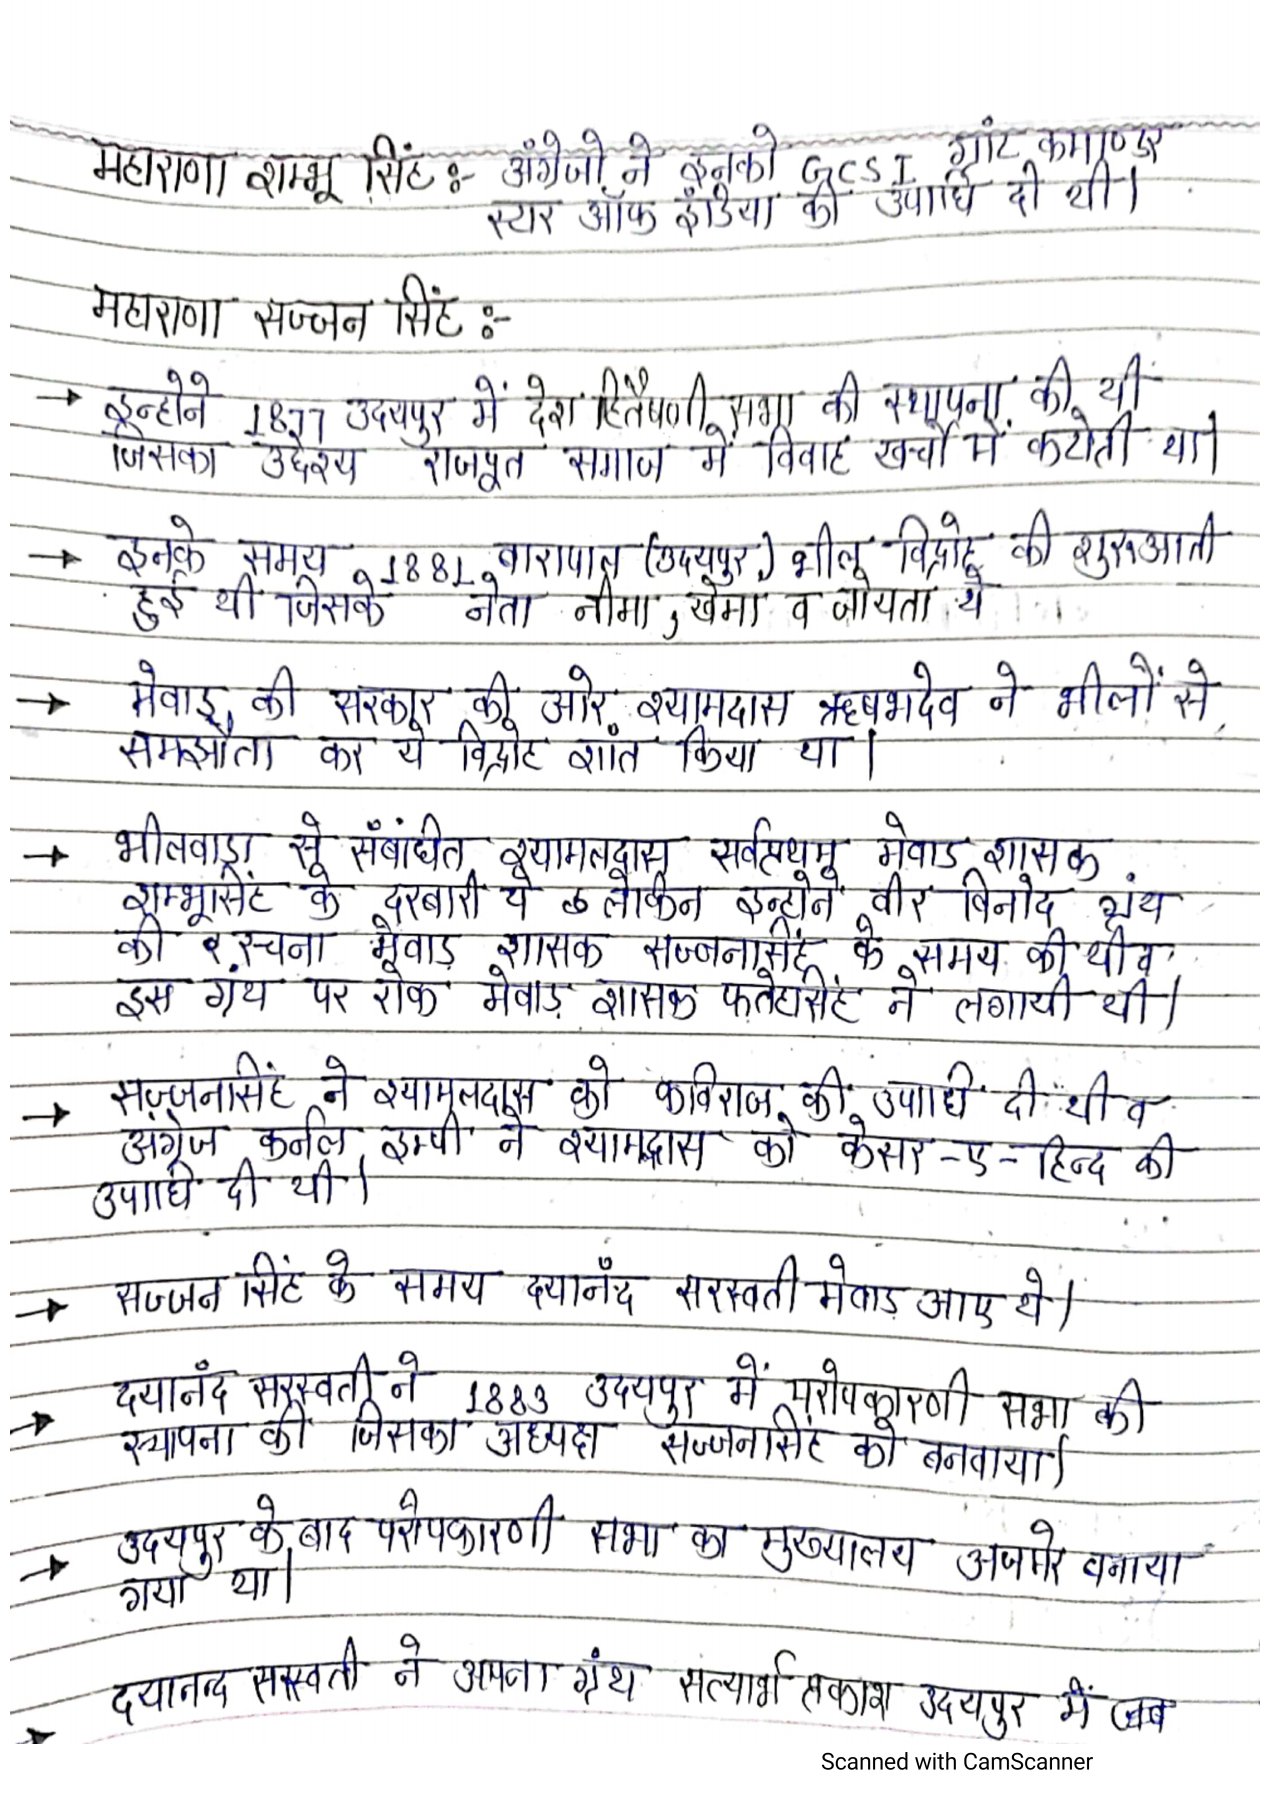 महाराणा शम्भू सिंह :- अंग्रेजो ने इनको GCSI ग्रांट कमाण्डर
स्टार ऑफ इंडिया की उपाधि दी थी।
महाराणा सज्जन सिंह :-
→ इन्होने 1877 उदयपुर में देश हितैषणी सभा की स्थापना की थी
जिसका उद्देश्य राजपूत समाज में विवाह खर्चो में कटोती था।
→ इनके समय 1881 बारापाल (उदयपुर) भील विद्रोह की शुरुआती
हुई थी जिसके नेता नीमा, खेमा व जोयता थे
→ मेवाड़ की सरकार की ओर श्यामदास ऋषभदेव ने भीलों से
समझौता कर ये विद्रोह शांत किया था।
→ भीलवाड़ा से संबांधीत श्यामलदास सर्वप्रथम मेवाड शासक
शम्भूसिंह के दरबारी थे लेकिन इन्होने वीर विनोद ग्रंथ
की रचना मेवाड़ शासक सज्जनसिंह के समय की थी व
इस ग्रंथ पर रोक मेवाड़ शासक फतेहसिंह ने लगायी थी।
→ सज्जनसिंह ने श्यामलदास को कविराज की उपाधि दी थी व
अंग्रेज कर्नल इम्पी ने श्यामदास को केसर-ए-हिन्द की
उपाधि दी थी।
→ सज्जन सिंह के समय दयानँद सरस्वती मेवाड़ आए थे।
→ दयानँद सरस्वती ने 1883 उदयपुर में परोपकारणी सभा की
स्थापना की जिसका अध्यक्ष सज्जनसिंह को बनवाया।
→ उदयपुर के बाद परोपकारणी सभा का मुख्यालय अजमेर बनाया
गया था।
→ दयानन्द सरस्वती ने अपना ग्रंथ सत्यार्थ प्रकाश उदयपुर में जब
Scanned with CamScanner